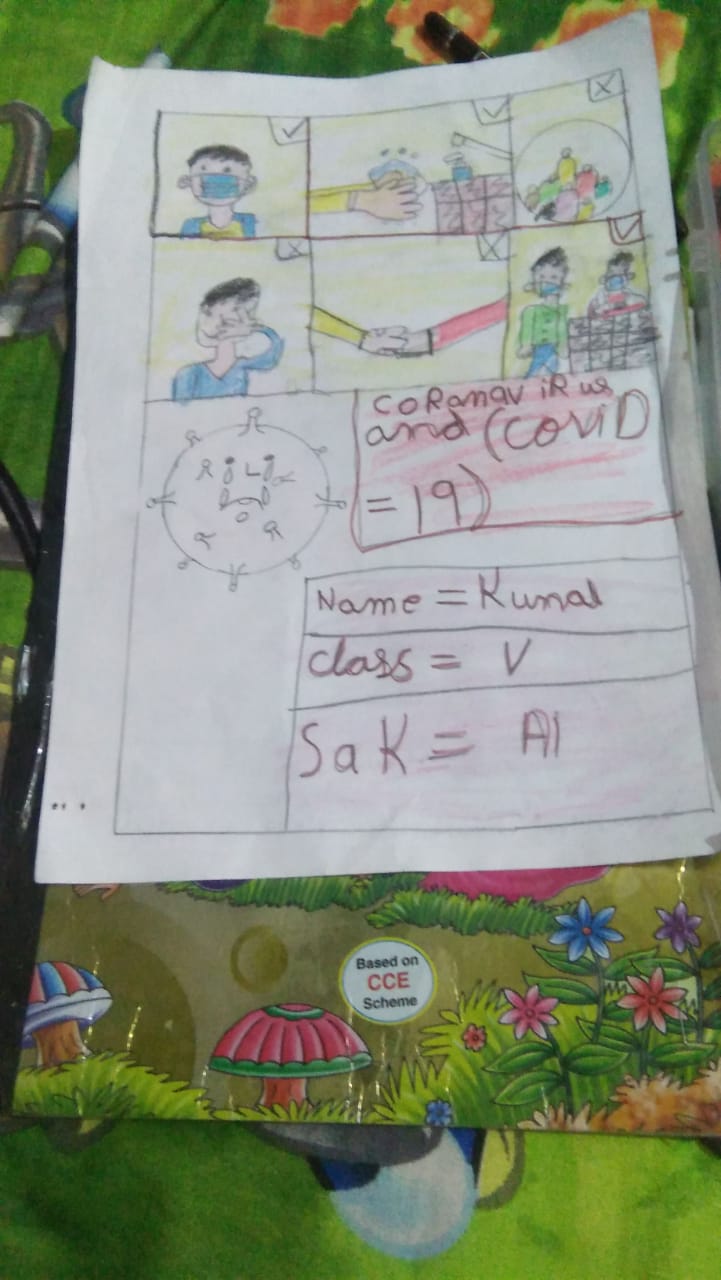 CoRanav iR us
and (coviD
= 19)
Name = Kunal
class = V
SaK = AI
Based on
CCE
Scheme